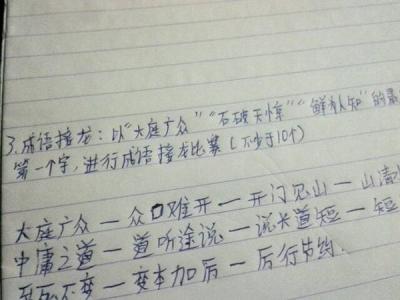 3.成语接龙：以“大庭广众”“石破天惊”“鲜有人知”的最
第一个字,进行成语接龙比赛(不少于10个)
大庭广众—众口难开—开门见山—山清
中庸之道—道听途说—说长道短—短
死不变—变本加后—后行节约.